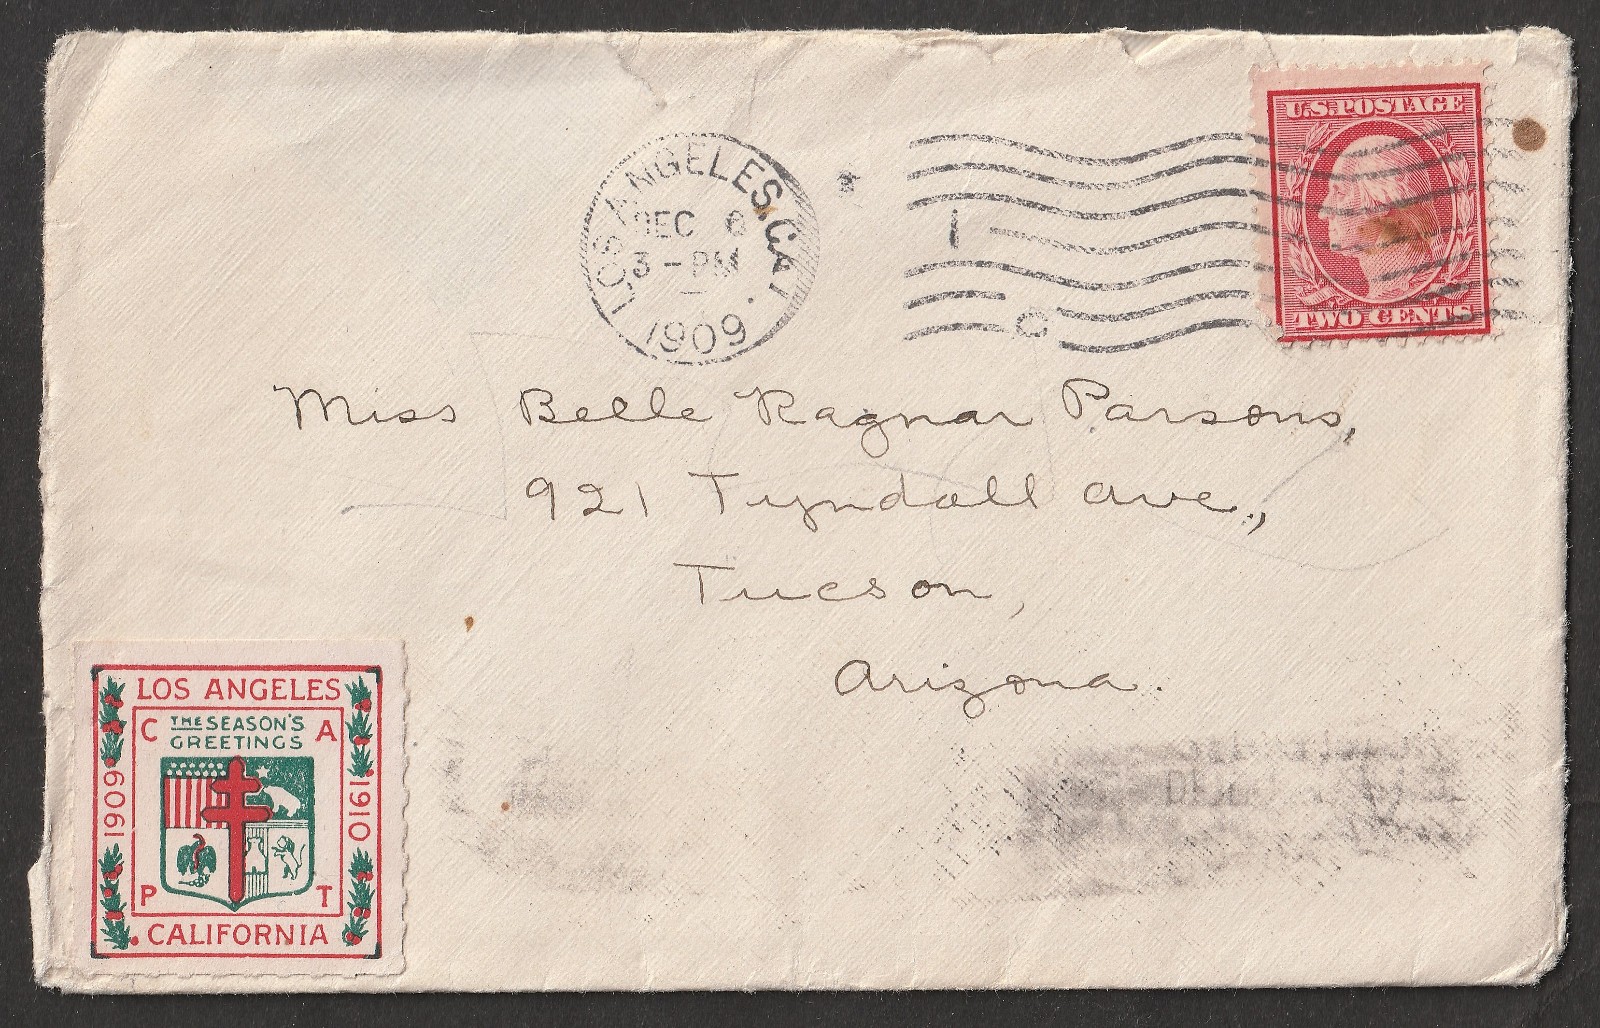 LOS ANGELES, CAL
DEC 8
3-PM
1909
U.S. POSTAGE
TWO CENTS
Miss Belle Ragnar Parsons,
921 Tyndall Ave.,
Tucson,
Arizona.
LOS ANGELES
C THE SEASON'S A
GREETINGS
1909
1910
P T
CALIFORNIA